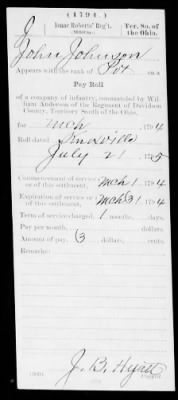 (1794.)
Isaac Roberts' Reg't. Ter. So. of the Ohio.
John Johnson
Appears with the rank of Pvt on a
Pay Roll
of a company of infantry, commanded by Wil-
liam Anderson of the Regiment of Davidson
County, Territory South of the Ohio,
for mch 1794
Roll dated Knoxville
July 21 1795
Commencement of service or
of this settlement, mch 1 1794
Expiration of service or
of this settlement, mch 31 1794
Term of service charged, 1 months, days.
Pay per month, dollars.
Amount of pay, 3 dollars, cents.
Remarks:
J. B. Hyatt
Copyist.